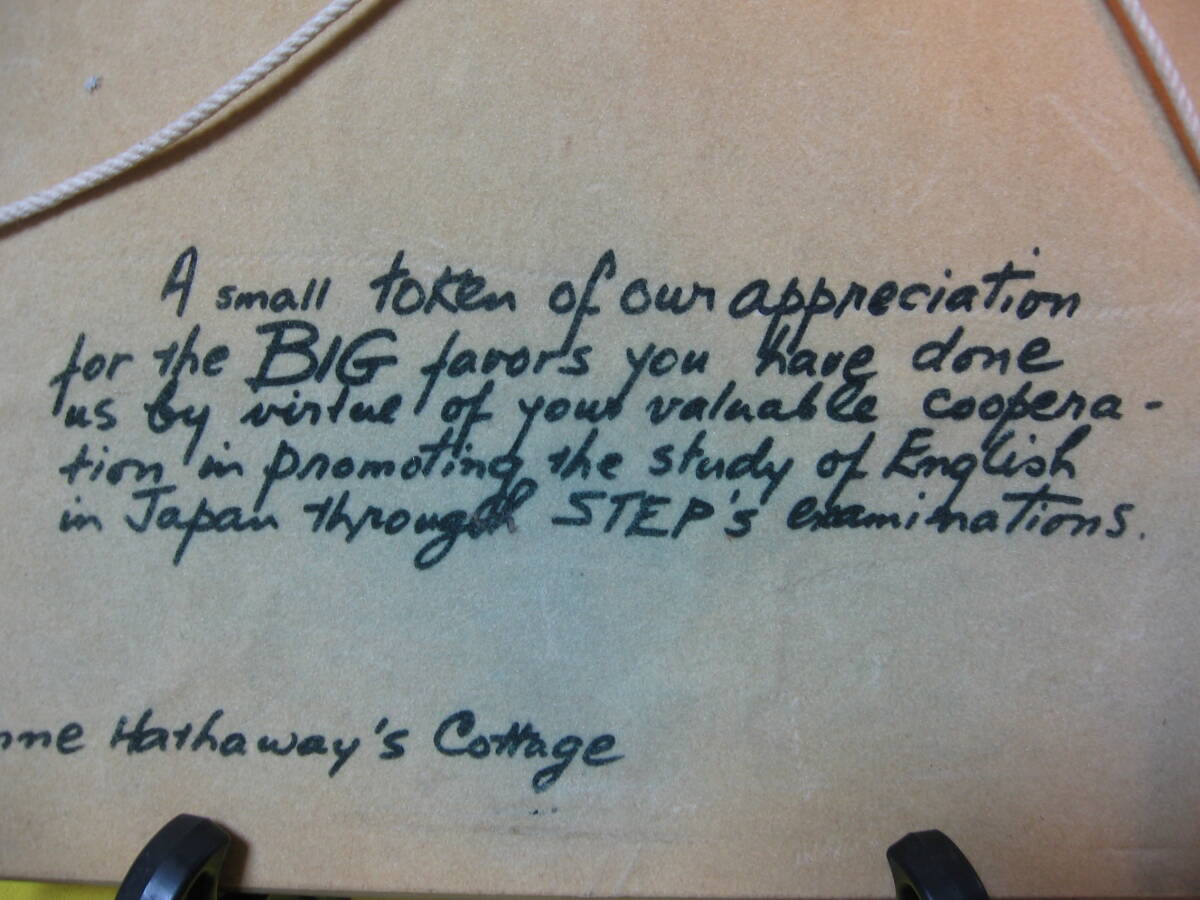 A small token of our appreciation
for the BIG favors you have done
us by virtue of your valuable coopera-
tion in promoting the study of English
in Japan through STEP's examinations.
Hathaway's Cottage